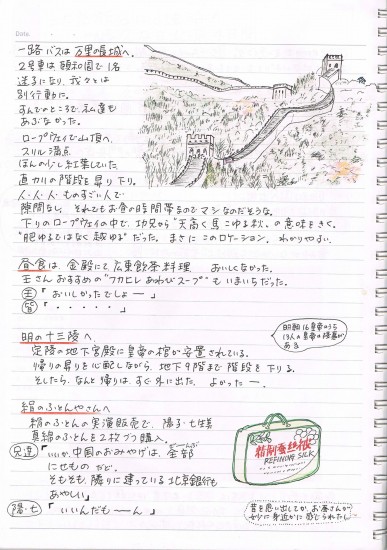 Date
一路バスは万里の長城へ。
2号車は頤和園で1名
迷子になり、我々とは
別行動に。
すんでのところで、私達も
あぶなかった。
ロープウェイで山頂へ、
スリル満点
ほんの少し紅葉していた
直カリの階段を昇り下り。
人・人・人・ものすごい人で
隙間なし。それでもお昼の時間帯なのでマシなのだそうな。
下りのロープウェイの中で、功兄から“天高く馬こゆる秋”の意味をきく。
“肥ゆるではなく越ゆる”だった。まさにこのロケーション、わかりやすい。
昼食は、金殿にて広東飲茶料理 おいしくなかった。
王さんおすすめの“フカヒレあわびスープ”もいまいちだった。
王「おいしかったでしょー」
皆「・・・・・」
明の十三陵へ
定陵の地下宮殿に皇帝の棺が安置されている。
帰りの昇りを心配しながら、地下9階まで階段を下る。
そしたら、なんと帰りは、すぐ外に出た。よかったー。
明朝16皇帝のうち
13人の皇帝の陵墓が
ある
絹のふとんやさんへ
絹のふとんの実演販売で、陽子・七生
真綿のふとんを2枚づつ購入。
兄達「いいか、中国のおみやげは、全部
にせものだぞ。
そもそも隣りに建っている北京銀行も
あやしい」
陽・七「いいんだもーん」
REFINING SILK
昔を思い出してか、お蚕さんが
妙に身近かに感じられたし